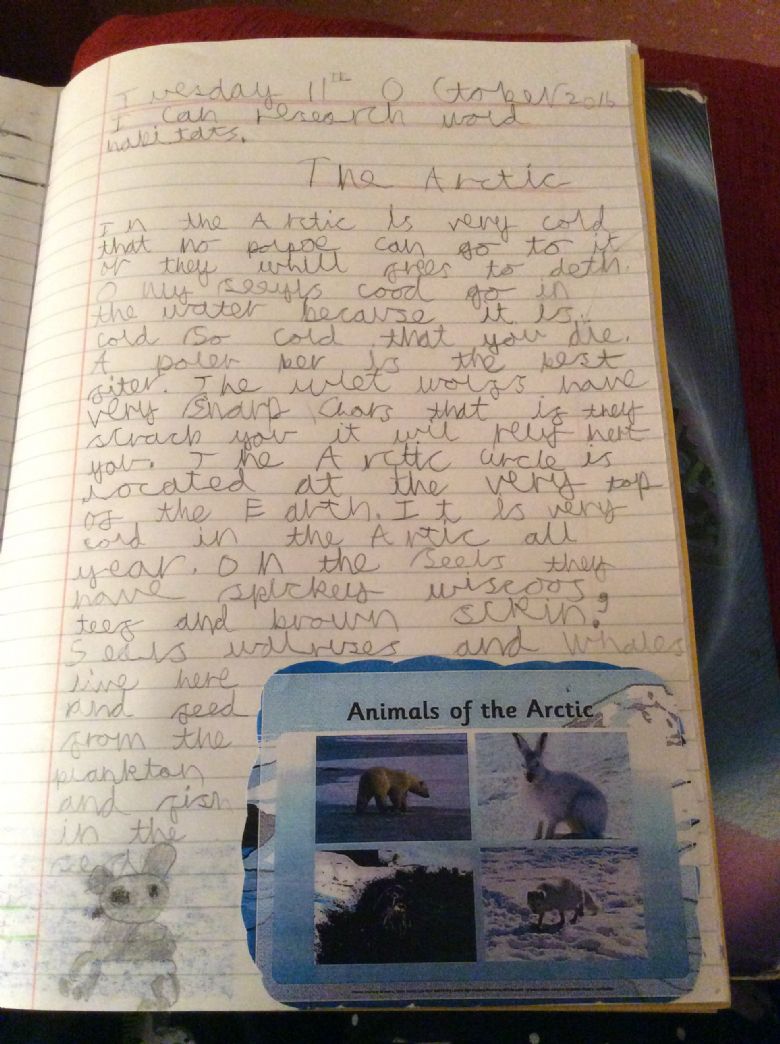 Tuesday 11TH October 2016
I can research world
habitats.
The Arctic
In the Arctic is very cold
that no pepoe can go to it
or they whill frees to deth.
O nly seeyls cood go in
the water because it is
cold so cold that you die.
A poler ber is the best
fiter. The wlet wolfs have
very sharp Claors that is they
scrach you it will relly hert
you. The Arcttc circle is
located at the very top
of the Earth. It is very
cold in the Arctic all
year. On the seels they
have spickey wiscoos,
teef and brown sckin.
Seals wallruses and whales
live here
and feed
from the
plankton
and fish
in the
sea.
Animals of the Arctic